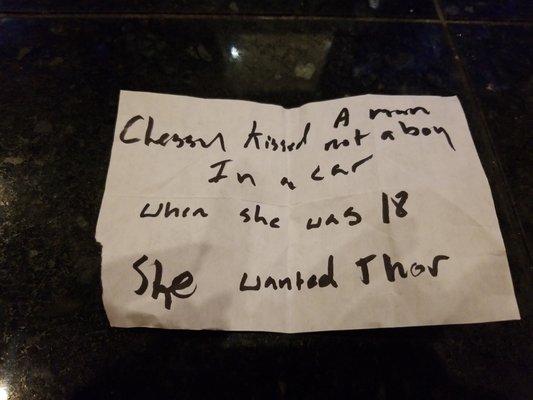 Chessy kissed A man
not a boy
In a car
when she was 18
She wanted Thor